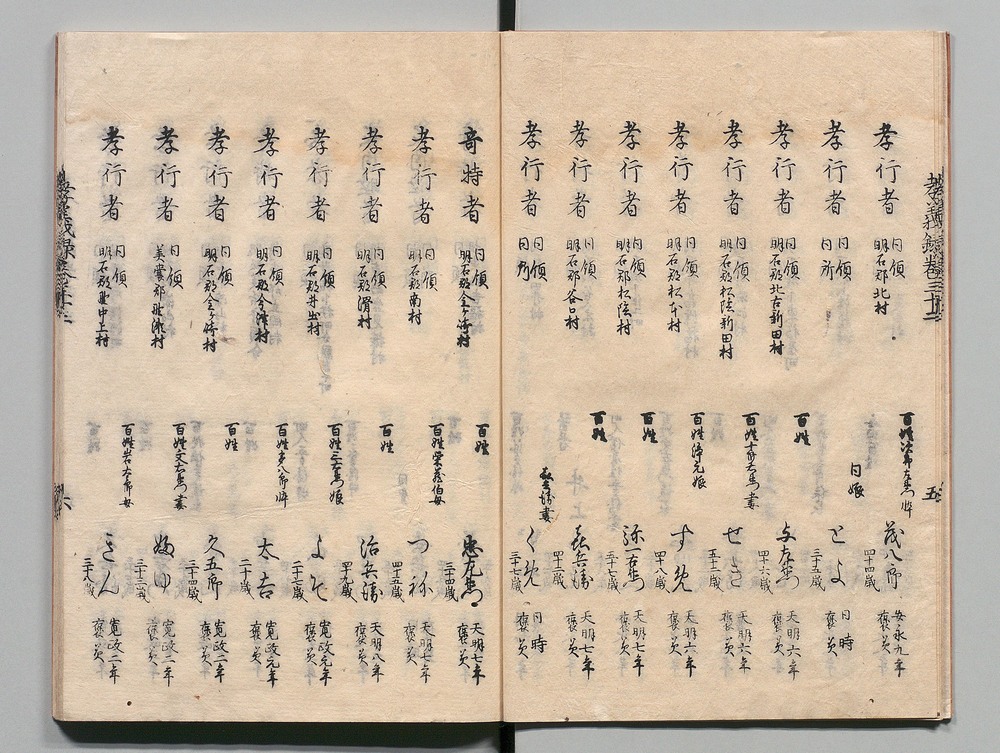 孝義録巻三十三
五
孝行者 同領明石郡北村 百姓次郎左衛門忰 茂八郎 四十四歳 安永九年褒美
孝行者 同領同所 同娘 とよ 三十五歳 同時褒美
孝行者 同領明石郡北古新田村 百姓 与左衛門 四十六歳 天明六年褒美
孝行者 同領明石郡松陰新田村 妻 せき 五十二歳 天明六年褒美
孝行者 同領明石郡松本村 百姓 娘 すめ 四十八歳 天明六年褒美
孝行者 同領明石郡松陰村 百姓 弥一右衛門 五十七歳 天明七年褒美
孝行者 同領明石郡谷口村 百姓 喜兵衛 四十二歳 天明七年褒美
孝行者 同領同所 喜兵衛妻 くめ 三十七歳 同時褒美
奇特者 同領明石郡金ヶ崎村 百姓 忠左衛門 三十四歳 天明七年褒美
孝行者 同領明石郡南村 百姓 伯母 つね 四十五歳 天明七年褒美
孝行者 同領明石郡滑村 百姓 治兵衛 四十九歳 天明八年褒美
孝行者 同領明石郡井出村 百姓三右衛門娘 よそ 二十二歳 寛政元年褒美
孝行者 同領明石郡今津村 百姓 忰 太吉 二十歳 寛政元年褒美
孝行者 同領明石郡金ヶ崎村 百姓 久五郎 三十四歳 寛政二年褒美
孝行者 同領美嚢郡 村 百姓文右衛門妻 ゆ 三十三歳 寛政二年褒美
孝行者 同領明石郡 中上村 百姓岩太郎女 きん 二十八歳 寛政二年褒美
孝義録巻三十三
六